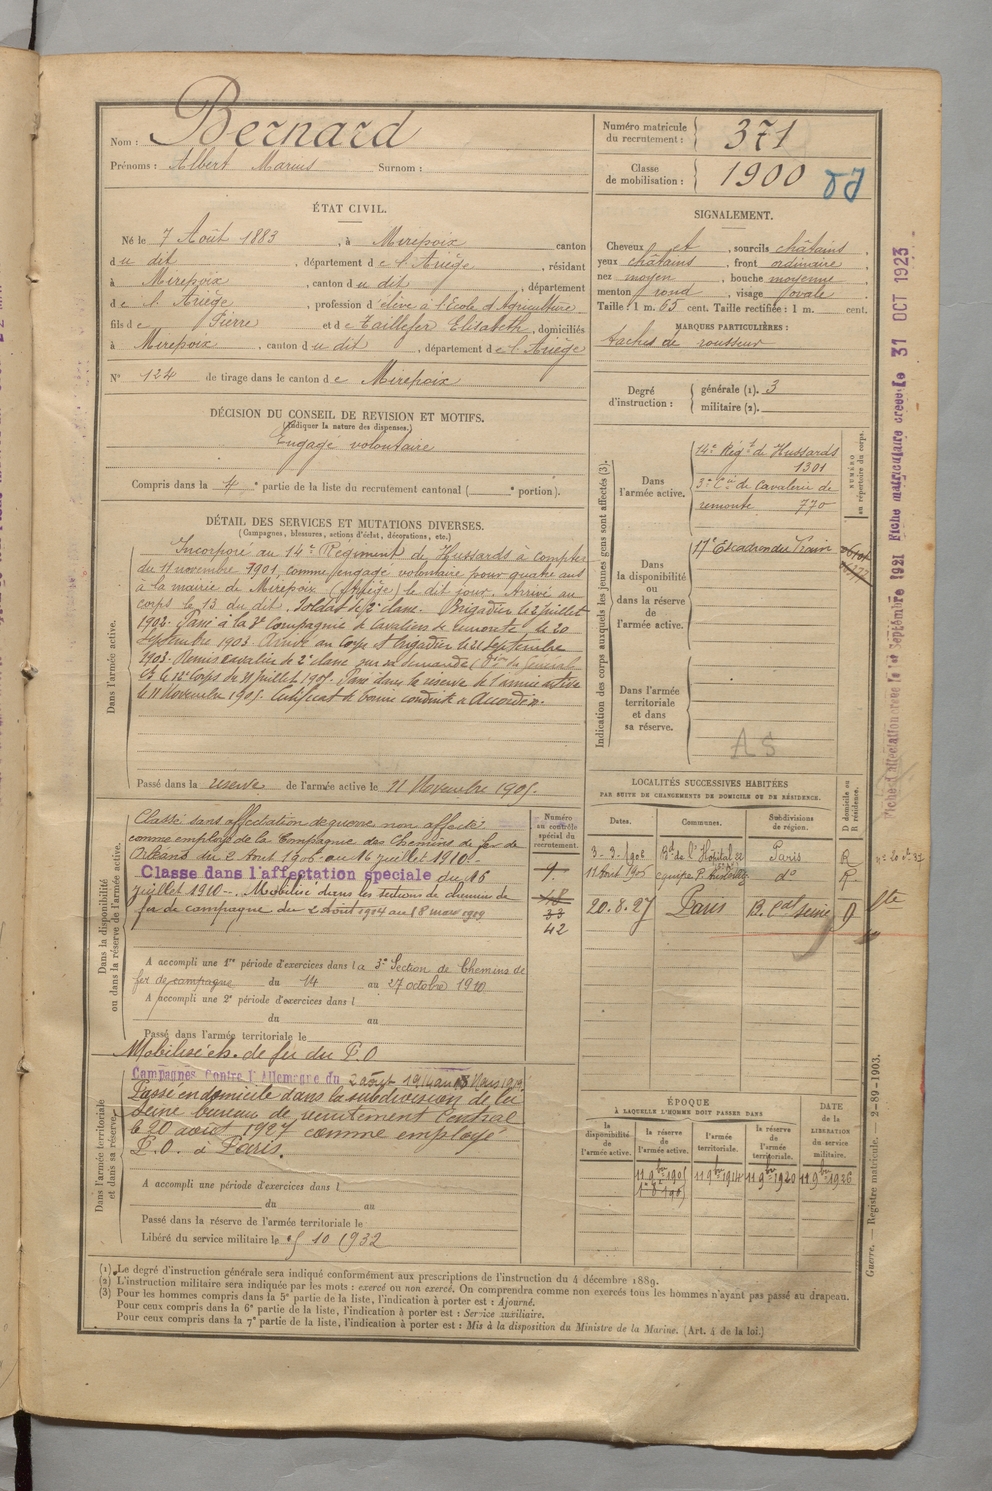 Nom : Bernard
Prénoms : Albert Marius Surnom :
Numéro matricule du recrutement : 371
Classe de mobilisation : 1900
ÉTAT CIVIL.
Né le 7 Août 1883, à Mirepoix canton
du dit, département de l'Ariège, résidant
à Mirepoix, canton du dit, département
de l'Ariège, profession d'élève à l'Ecole d'Agriculture
fils de Pierre et de Taillefer Elisabeth, domiciliés
à Mirepoix, canton du dit, département de l'Ariège
N° 124 de tirage dans le canton de Mirepoix
SIGNALEMENT.
Cheveux et, sourcils châtains
yeux châtains, front ordinaire
nez moyen, bouche moyenne
menton rond, visage ovale
Taille : 1 m. 65 cent. Taille rectifiée : 1 m. cent.
MARQUES PARTICULIÈRES :
taches de rousseur
Degré d'instruction : générale (1). 3
militaire (2).
DÉCISION DU CONSEIL DE REVISION ET MOTIFS.
(Indiquer la nature des dispenses.)
Engagé volontaire
Compris dans la 4e partie de la liste du recrutement cantonal ( e portion).
DÉTAIL DES SERVICES ET MUTATIONS DIVERSES.
(Campagnes, blessures, actions d'éclat, décorations, etc.)
Dans l'armée active.
Incorporé au 14e Régiment de Hussards à compter
du 11 novembre 1901, comme engagé volontaire pour quatre ans
à la mairie de Mirepoix (Ariège) le dit jour. Arrivé au
corps le 13 du dit. Soldat de 2e classe. Brigadier le 2 juillet
1902. Passé à la 3e Compagnie de Cavaliers de remonte le 20
Septembre 1903. Arrivé au Corps et brigadier le 21 Septembre
1903. Remis cavalier de 2e classe sur sa demande
juillet 1905. Passé dans la réserve de l'armée active
le 11 Novembre 1905. Certificat de bonne conduite "Accordé".
Passé dans la réserve de l'armée active le 11 Novembre 1905.
Indication des corps auxquels les jeunes gens sont affectés (3).
NUMÉRO au répertoire du corps.
Dans l'armée active.
14e Régt de Hussards
1301
3e Cie de Cavaliers de
remonte 770
Dans la disponibilité ou dans la réserve de l'armée active.
17e Escadron du Train
Dans l'armée territoriale et dans sa réserve.
AS
Dans la disponibilité ou dans la réserve de l'armée active.
Classé sans affectation de guerre non affecté
comme employé de la Compagnie des Chemins de fer de
Orléans du 2 Aout 1906 au 16 juillet 1910
Classé dans l'affectation spéciale du 16
juillet 1910 Mobilisé dans les sections de chemins de
fer de campagne du 2 août 1914 au 18 mars 1919
A accompli une 1re période d'exercices dans la 3e Section de Chemins de
fer de campagne du 14 au 27 octobre 1910
A accompli une 2e période d'exercices dans l
du au
Passé dans l'armée territoriale le
Numéro au contrôle spécial du recrutement.
9
18
33
42
LOCALITÉS SUCCESSIVES HABITÉES
PAR SUITE DE CHANGEMENTS DE DOMICILE OU DE RÉSIDENCE.
Dates. Communes. Subdivisions de région. D domicile ou R résidence.
3-3-1906 Bd de l'Hôpital 22 Paris R
11 Août 1906 do R
20.8.27 Paris B. Cal Seine D
Dans l'armée territoriale et dans sa réserve.
Mobilisé ch. de fer du P.O
Campagnes Contre l'Allemagne du 2 août 1914 au 18 Mars 1919
Passé en domicile dans la subdivision de la
Seine bureau de recrutement Central
le 20 août 1927 comme employé
P.O. à Paris.
A accompli une période d'exercices dans l
du au
Passé dans la réserve de l'armée territoriale le
Libéré du service militaire le 10 1932
ÉPOQUE
À LAQUELLE L'HOMME DOIT PASSER DANS
la disponibilité de l'armée active.
la réserve de l'armée active.
l'armée territoriale.
la réserve de l'armée territoriale.
DATE de la LIBÉRATION du service militaire.
11 9bre 1905 11 9bre 1914 11 9bre 1920 11 9bre 1926
(1) Le degré d'instruction générale sera indiqué conformément aux prescriptions de l'instruction du 4 décembre 1889.
(2) L'instruction militaire sera indiquée par les mots : exercé ou non exercé. On comprendra comme non exercés tous les hommes n'ayant pas passé au drapeau.
(3) Pour les hommes compris dans la 5e partie de la liste, l'indication à porter est : Ajourné.
Pour ceux compris dans la 6e partie de la liste, l'indication à porter est : Service auxiliaire.
Pour ceux compris dans la 7e partie de la liste, l'indication à porter est : Mis à la disposition du Ministre de la Marine. (Art. 4 de la loi.)
Guerre. — Registre matricule. — 2-89-1903.
Fiche d'affectation créée le 1er Septembre 1921 Fiche matriculaire créée le 31 OCT 1923